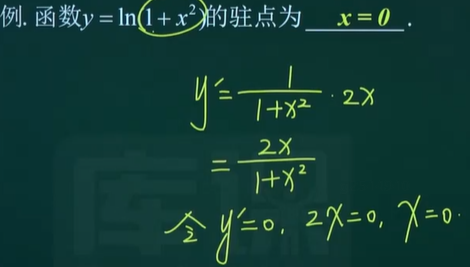 例. 函数y = ln(1 + x²)的驻点为 x = 0 .
y' = 1/(1+x²) · 2x
= 2x/(1+x²)
令 y'=0, 2x=0, x=0.
库课